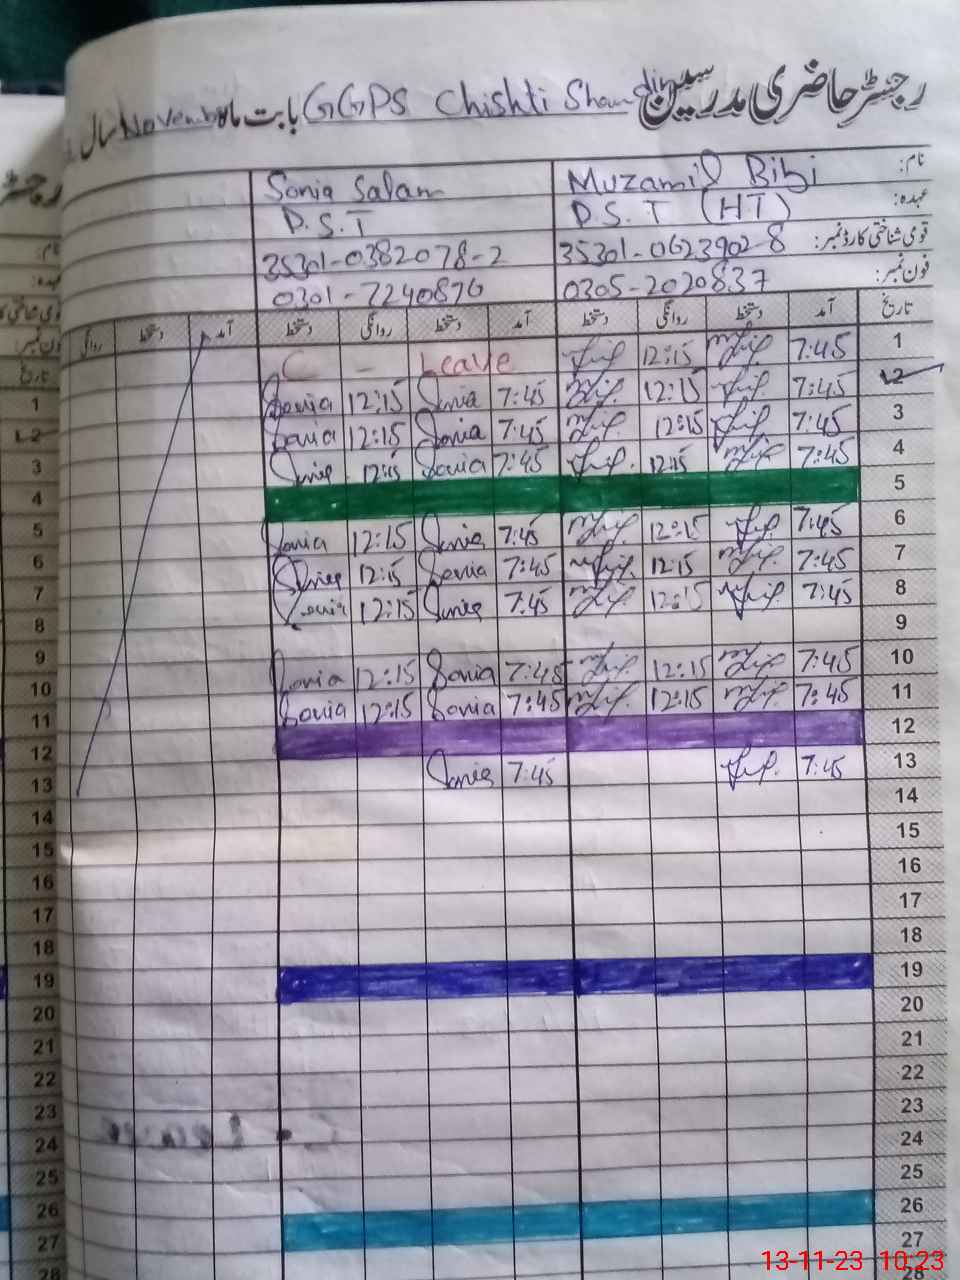 رجسٹر حاضری مدرسین GGPS Chishti Sham din بابت ماہ November سال
نام: Muzamil Bibi Sonia Salam
عہدہ: P.S.T (HT) P.S.T
قومی شناختی کارڈ نمبر: 35301-0623902-8 35301-0382078-2
فون نمبر: 0305-2020837 0301-7240876
تاریخ آمد دستخط روانگی دستخط آمد دستخط روانگی دستخط آمد دستخط روانگی
1 7:45 12:15 Leave - C
2 7:45 12:15 7:45 Sonia 12:15 Sonia
3 7:45 12:15 7:45 Sonia 12:15 Sonia
4 7:45 12:15 7:45 Sonia 12:15 Sonia
5
6 7:45 12:15 7:45 Sonia 12:15 Sonia
7 7:45 12:15 7:45 Sonia 12:15 Sonia
8 7:45 12:15 7:45 Sonia 12:15 Sonia
9
10 7:45 12:15 7:45 Sonia 12:15 Sonia
11 7:45 12:15 7:45 Sonia 12:15 Sonia
12
13 7:45 7:45 Sonia
14
15
16
17
18
19
20
21
22
23
24
25
26
27
28
تاریخ
1
2
3
4
5
6
7
8
9
10
11
12
13
14
15
16
17
18
19
20
21
22
23
24
25
26
27
28
13-11-23 10:23